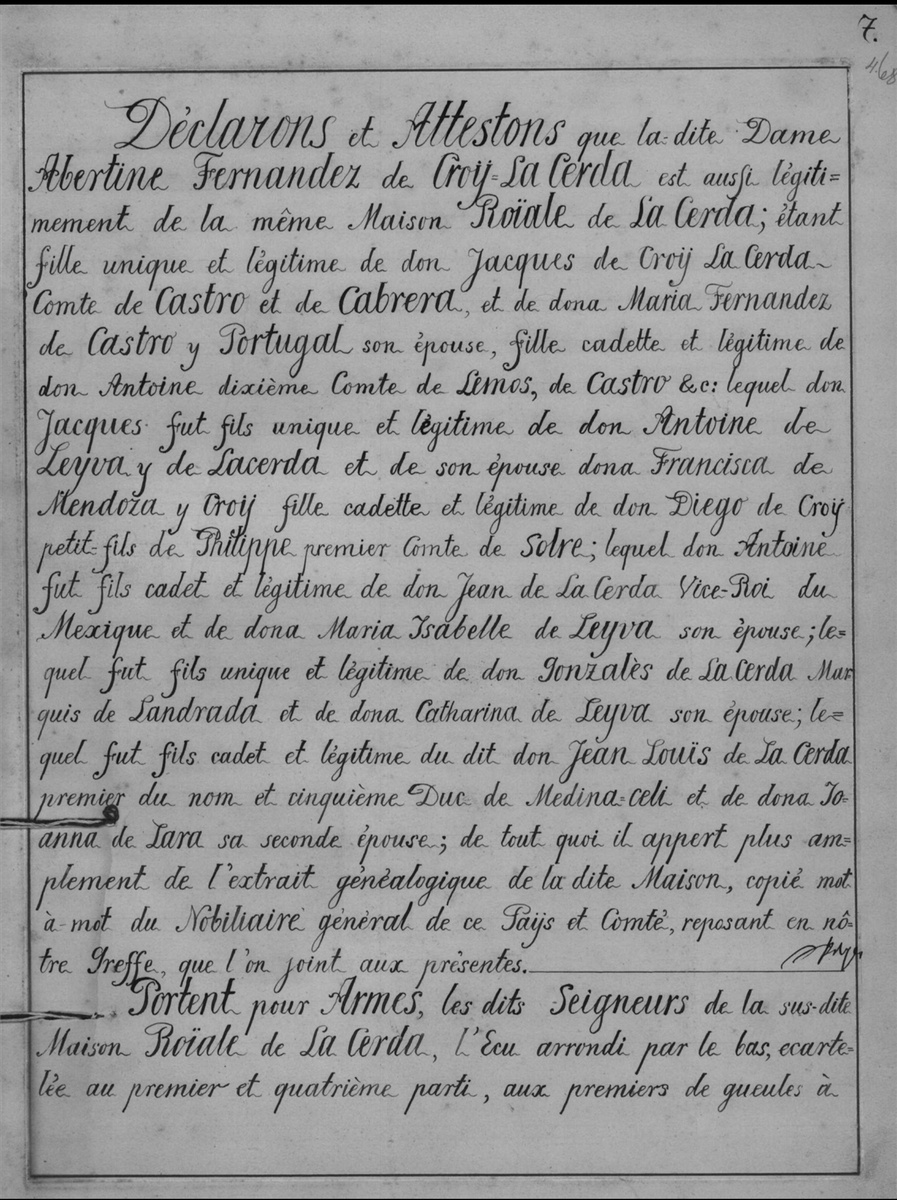 7.
468
Déclarons et Attestons que la-dite Dame
Abertine Fernandez de Croÿ=La Cerda est aussi légiti=
mement de la même Maison Roïale de La Cerda; étant
fille unique et légitime de don Jacques de Croÿ La Cerda
Comte de Castro et de Cabrera, et de dona Maria Fernandez
de Castro y Portugal son épouse, fille cadette et légitime de
don Antoine dixième Comte de Lemos, de Castro &c: lequel don
Jacques fut fils unique et légitime de don Antoine de
Leyva y de Lacerda et de son épouse dona Francisca de
Mendoza y Croÿ fille cadette et légitime de don Diego de Croÿ
petit=fils de Philippe premier Comte de Solre; lequel don Antoine
fut fils cadet et légitime de don Jean de La Cerda Vice-Roi du
Mexique et de dona Maria Isabelle de Leyva son épouse; le=
quel fut fils unique et légitime de don Gonzalès de La Cerda Mar
quis de Landrada et de dona Catharina de Leyva son épouse; le=
quel fut fils cadet et légitime du dit don Jean Louïs de La Cerda
premier du nom et cinquième Duc de Medina=celi et de dona Jo=
anna de Lara sa seconde épouse; de tout quoi il appert plus am=
plement de l'extrait généalogique de la dite Maison, copié mot
à-mot du Nobiliaire général de ce Païjs et Comté, reposant en nô=
tre Greffe, que l'on joint aux présentes.
Portent pour Armes, les dits Seigneurs de la sus-dite
Maison Roïale de La Cerda, l'Ecu arrondi par le bas, ecarte=
lée au premier et quatrième parti, aux premiers de gueules à